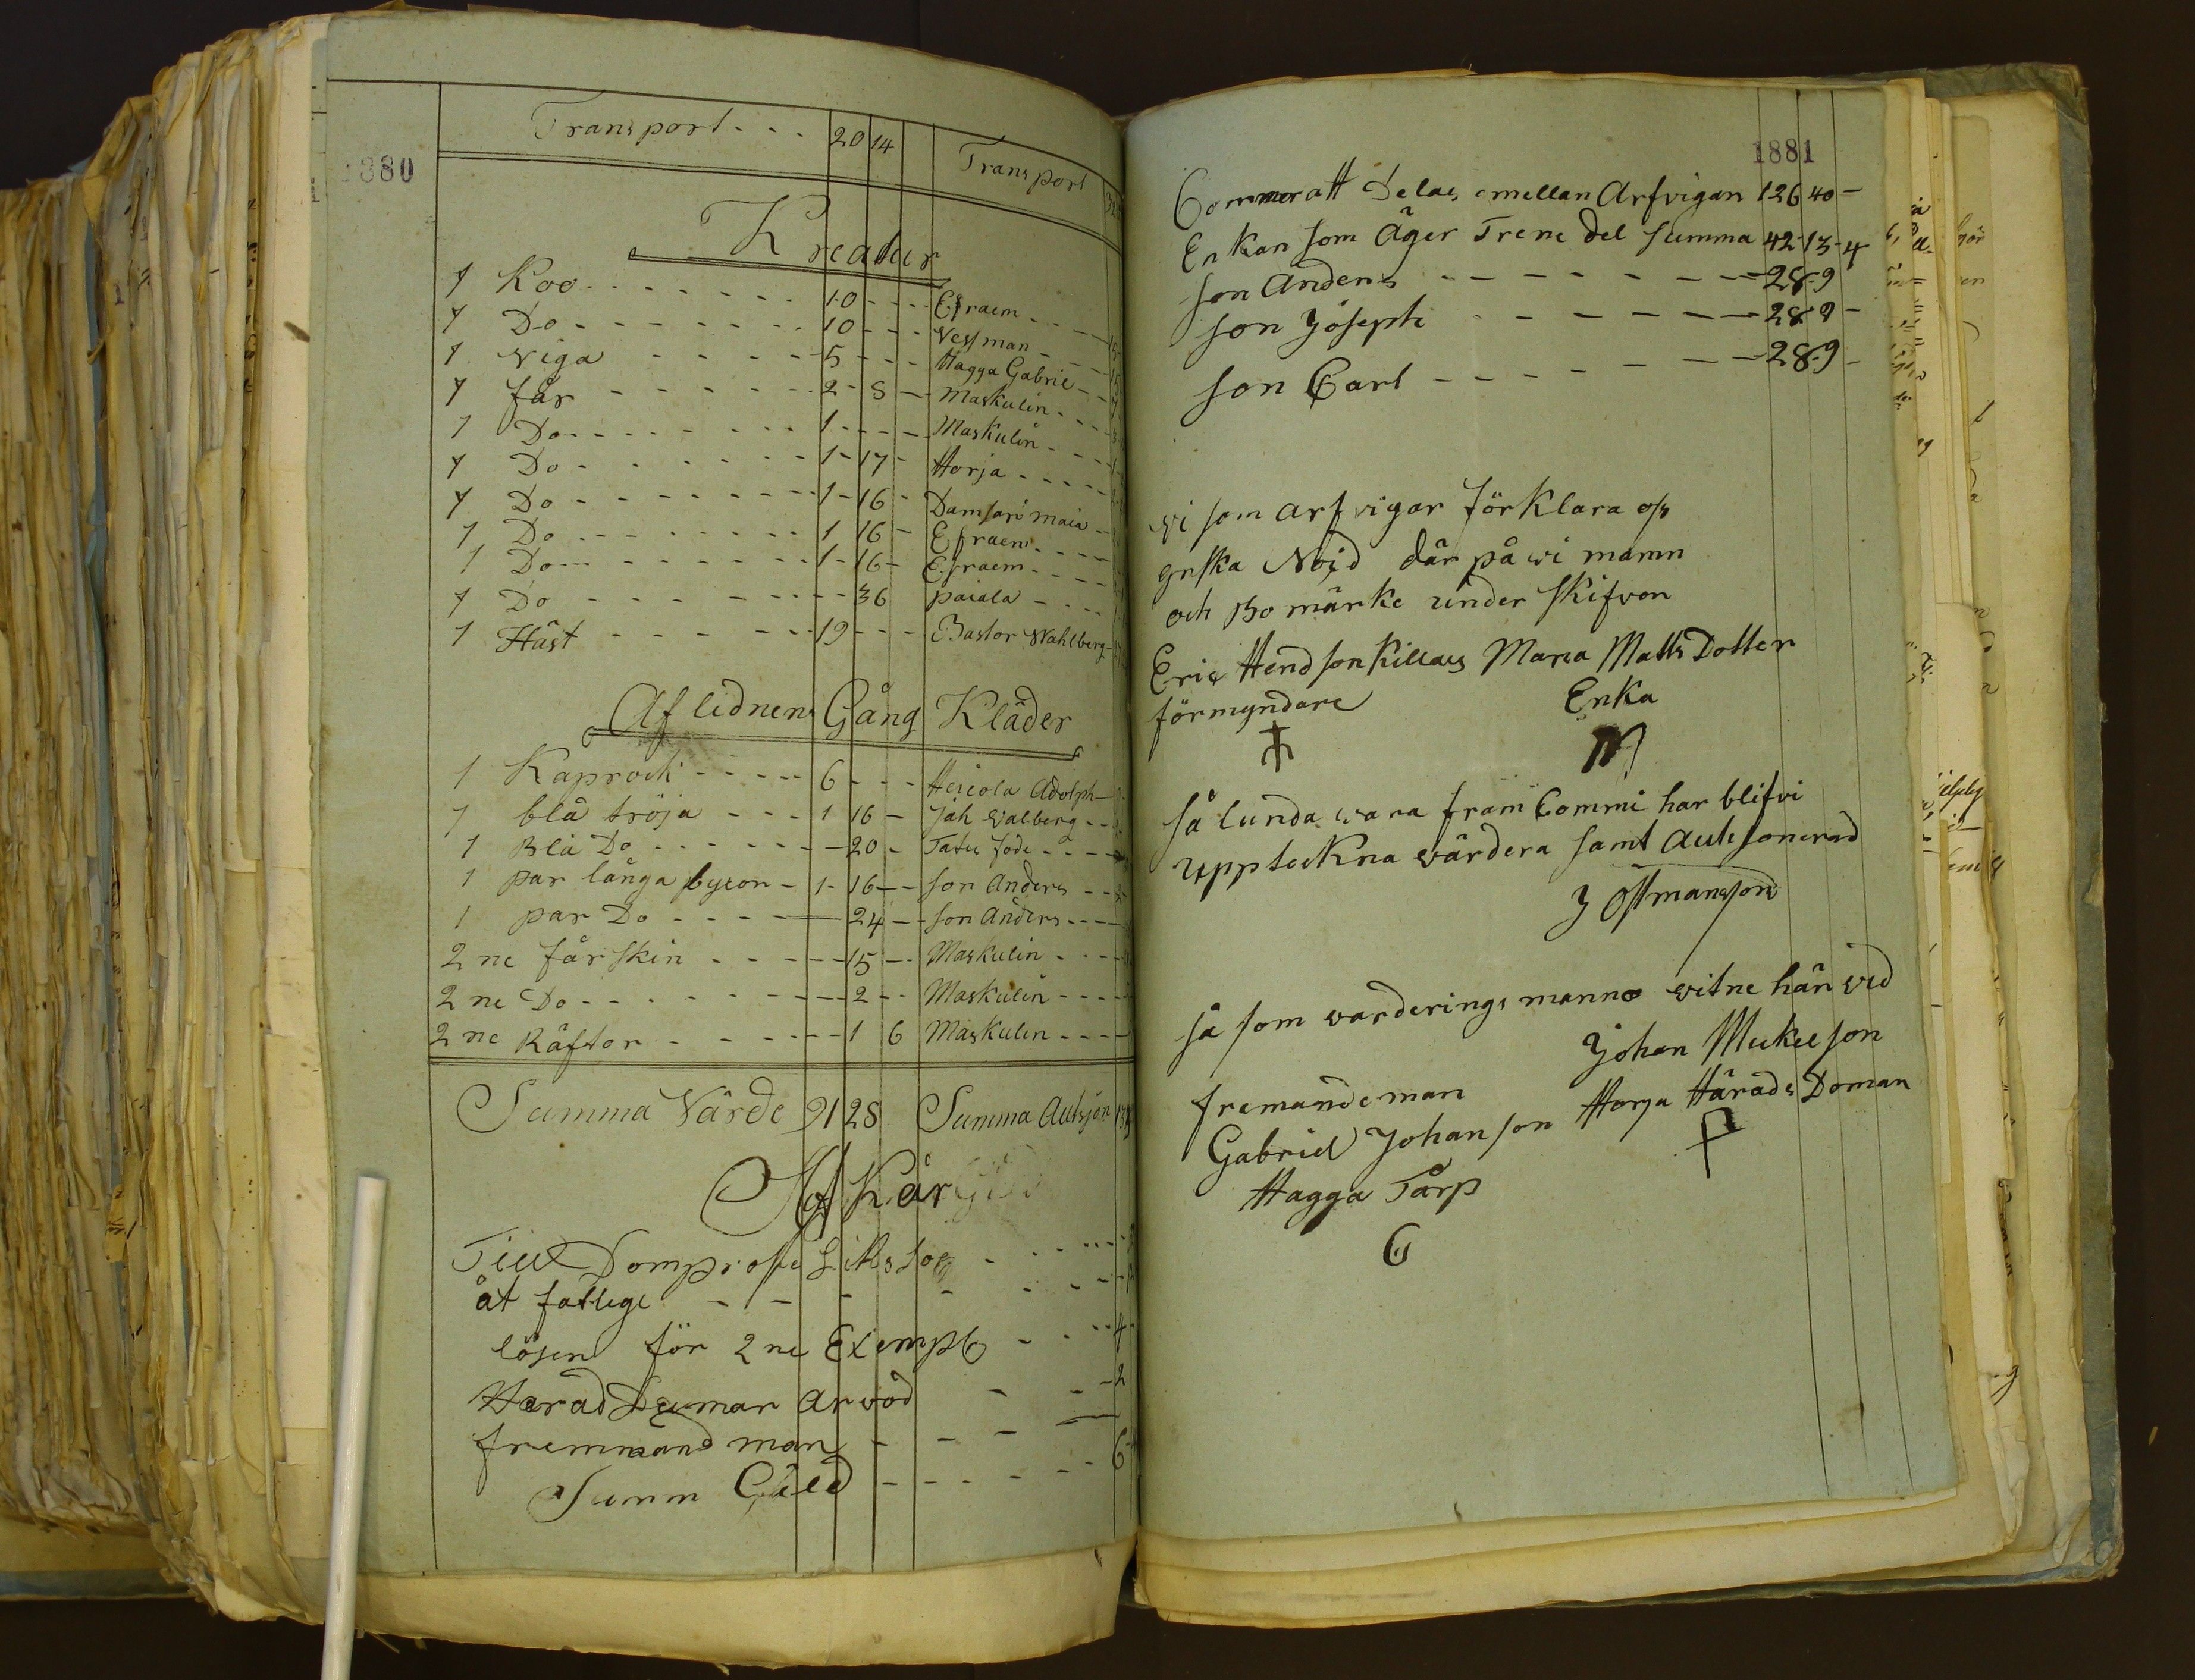 1880
Transport 20 14 Transport
Kreatur
1 Koo 10 Efraem
1 Do 10 Vessman
1 Viga 5 Hagga Gabriel
1 får 2 8 Maskulin
1 Do 1 Maskulin
1 Do 1 17 Horja
1 Do 1 16 Damsari maia
1 Do 1 16 Efraem
1 Do 1 16 Efraem
1 Do 36 paiala
1 Häst 19 Bastor Wahlberg
Aflednens Gång Kläder
1 Kaprock 6 Heicola Adolph
1 blå tröja 1 16 Joh Valberg
1 Blå Do 20
1 par långa byxor 1 16 son Anders
1 par Do 24 son Anders
2 ne får skin 15 Maskulin
2 ne Do 2 Maskulin
2 ne Räftor 1 6 Maskulin
Summa Värde 91 28 Summa Auksjon
Afkår
Till Domprost
åt fattige
lösen för 2 ne Exempl 4
Härad Dumar arvod 2
fremmand man
Summ Gäld 6
1881
Commer att Delas emellan Arfvigan 126 40
Enkan som Äger Trene del summa 42 13 4
son Anders 28 9
son Joseph 28 9
son Carl 28 9
vi som arfvigar förklara oss
gnska Nöjd där på vi mamn
och Bo märke under skifvon
Eric Hendson Killais Maria Matts Dotter
förmyndare Enka
så lunda vara fram Commi har blifvi
upptekna värdera samt auksonerad
J Ostmansson
så som varderings manno vitne här ved
Johan Mickelson
fremande man Horja Härads Doman
Gabriel Johanson
Hagga Tårp